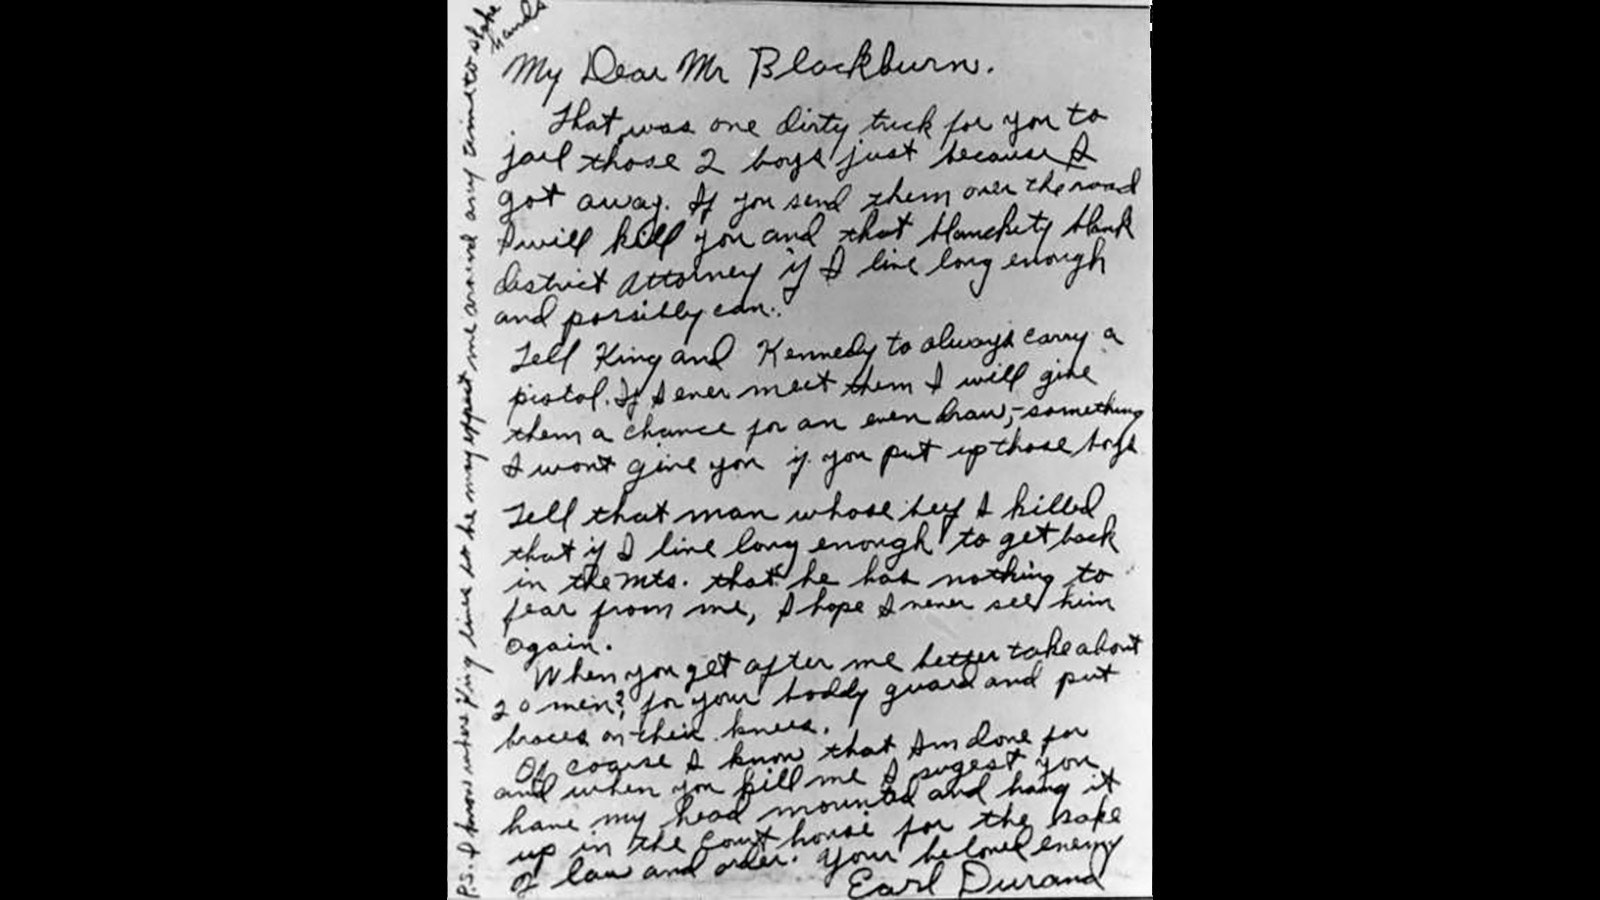 My Dear Mr Blackburn.
That was one dirty trick for you to
jail those 2 boys just because I
got away. If you send them over the road
I will kill you and that blanckety blank
district Attorney if I live long enough
and possibly can.
Tell King and Kennedy to always carry a
pistol. If I ever meet them I will give
them a chance for an even draw,-something
I wont give you if you put up those boys
Tell that man whose beef I killed
that if I live long enough to get back
in the Mts. that he has nothing to
fear from me, I hope I never see him
again.
When you get after me better take about
20 men? for your boddy guard and put
braces on their knees.
Of course I know that Im done for
and when you kill me I sugest you
have my head mounted and hang it
up in the court house for the sake
of law and order. Your beloved enemy
Earl Durand
P.S. I know where King lives so he may expect me around any time to shake
hands